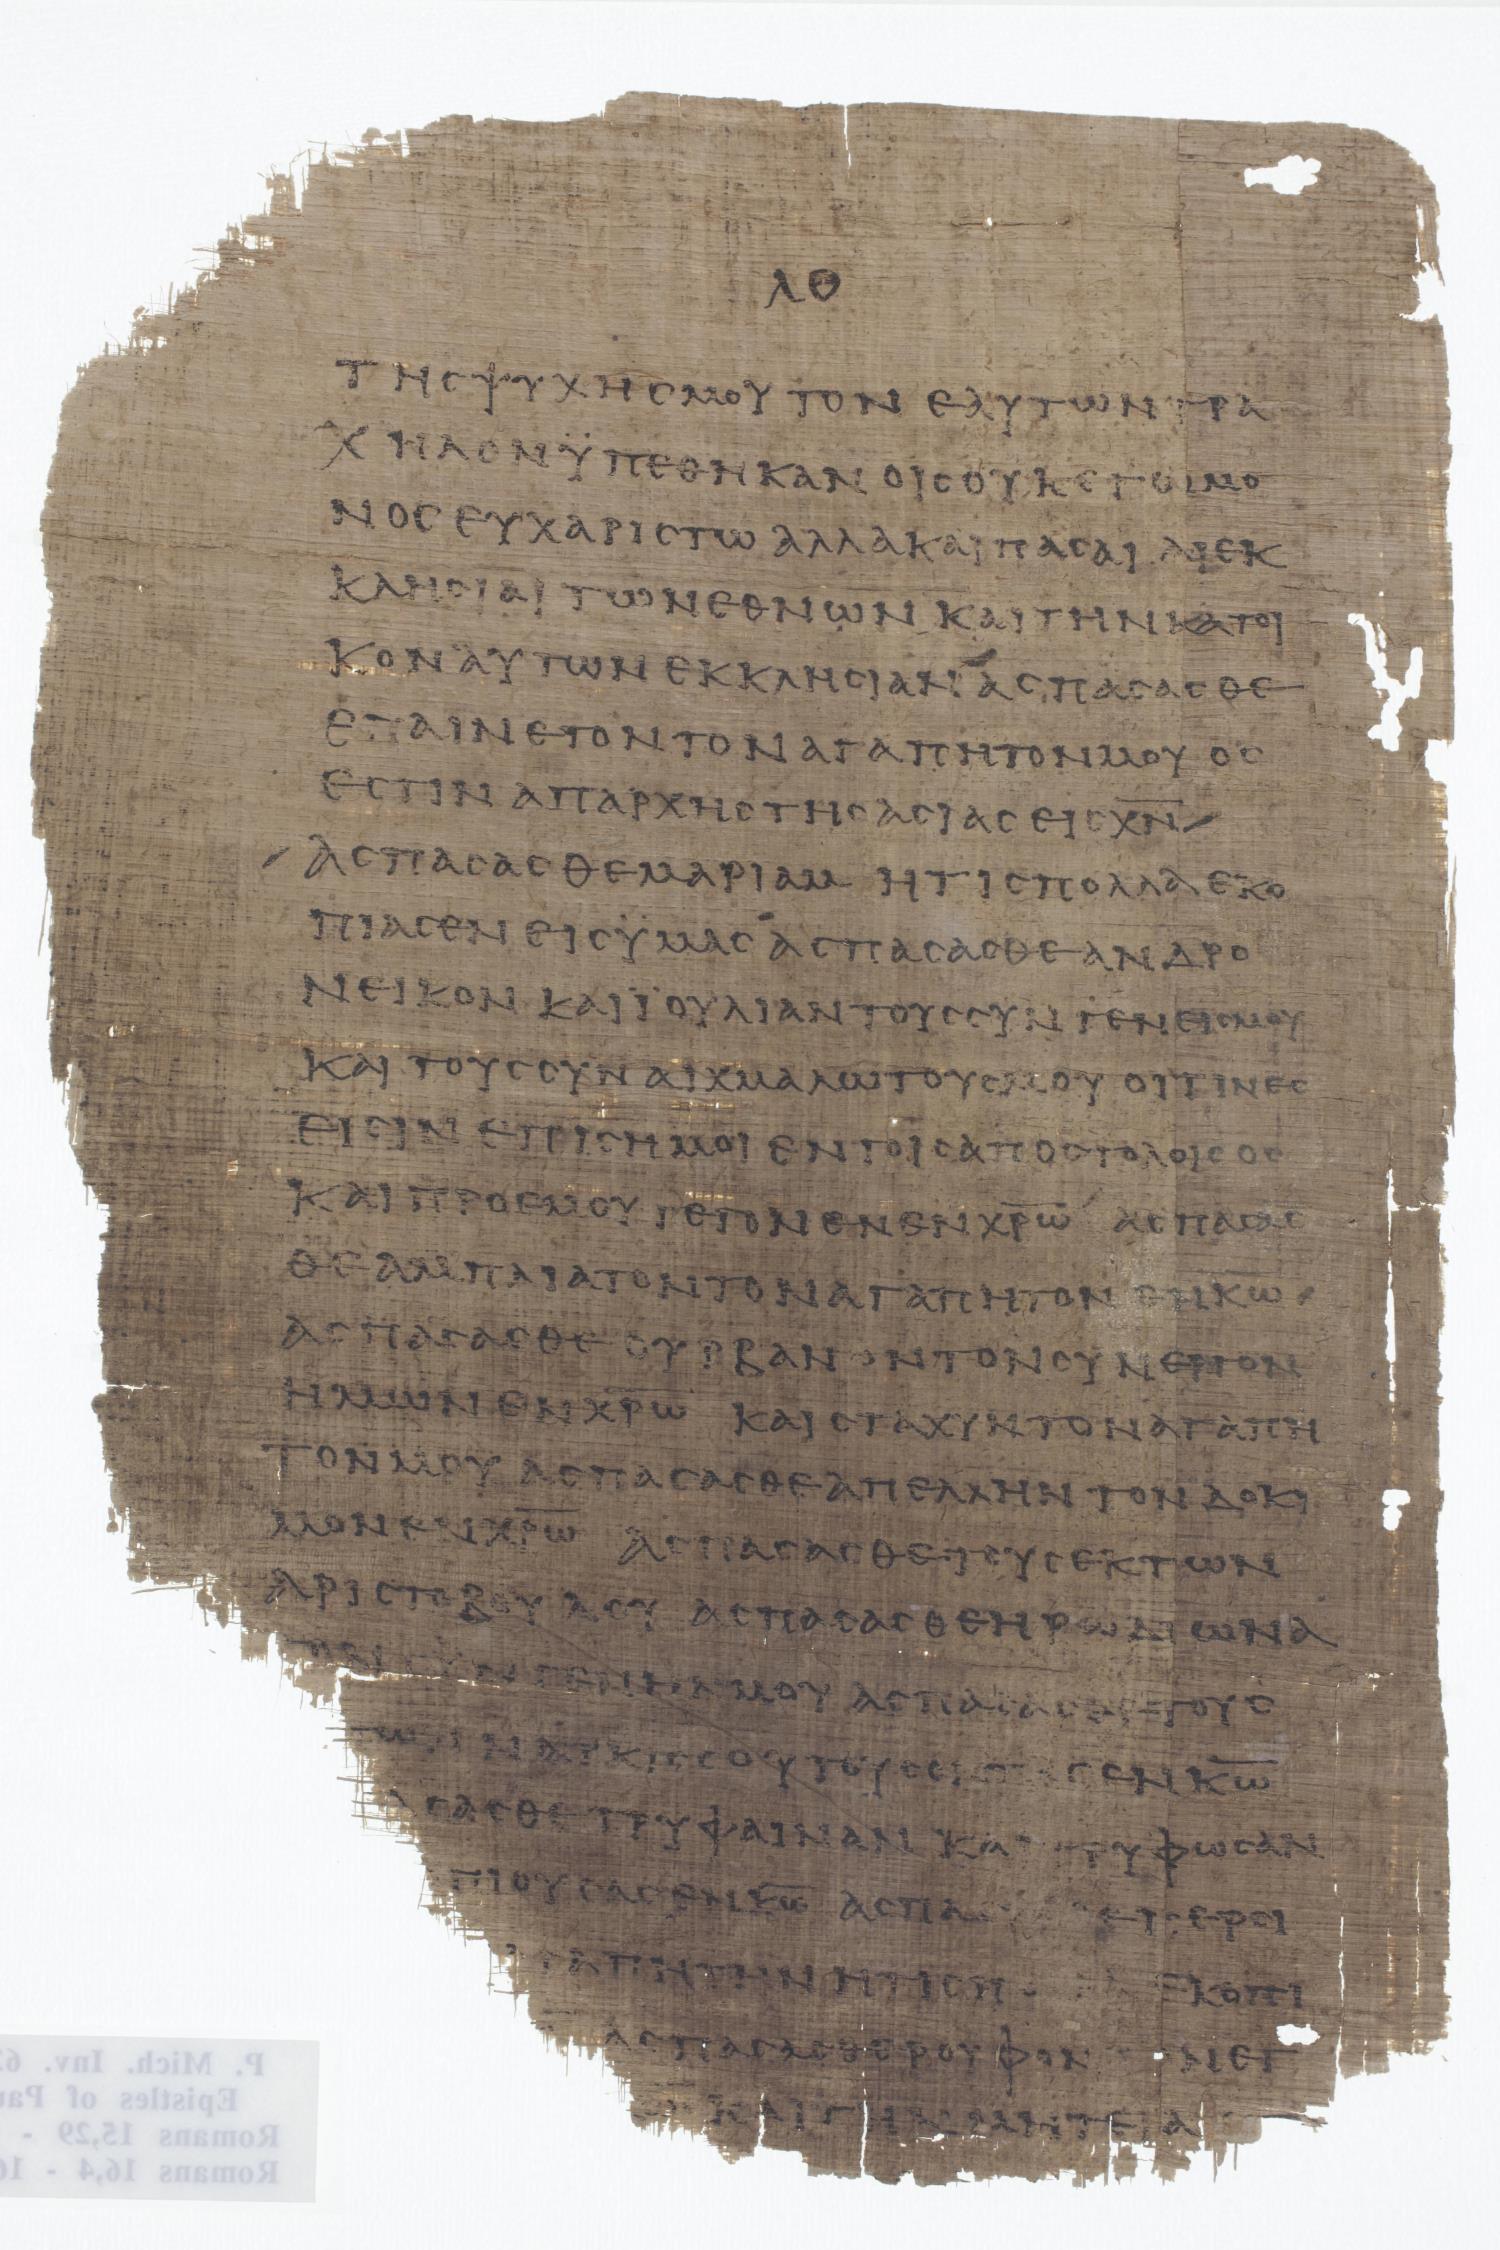 λθ
της ψυχης μου τον εαυτων τρα
χηλον ϋπεθηκαν οις ουκ εγω μο
νος ευχαριστω αλλα και πασαι αι εκ
κλησιαι των εθνων και την κατ οι
κον αυτων εκκλησιαν ασπασασθε
επαινετον τον αγαπητον μου ος
εστιν απαρχης της ασιας εις χ̅ν̅ ⸍
⸍ ασπασασθε μαριαμ ητις πολλα εκο
πιασεν εις ϋμας ασπασασθε ανδρο
νεικον και ϊουλιαν τους συνγενεις μου
και τους συναιχμαλωτους μου οιτινες
εισιν επισημοι εν τοις αποστολοις ος
και προ εμου γεγονεν εν χ̅ρ̅ω̅ ασπασασ
θε αμπλιατον τον αγαπητον εν κ̅ω̅ ⸍
ασπασασθε ουρβανον τον συνεργον
ημων εν χ̅ρ̅ω̅ και σταχυν τον αγαπη
τον μου ασπασασθε απελλην τον δοκι
μον εν χ̅ρ̅ω̅ ασπασασθε τους εκ των
αριστοβουλου ασπασασθε ηρωδιωνα
συνγενην μου ασπασασθε τους
ναρκισσου τους εν κ̅ω̅
σασθε τρυφαιναν και τρυφωσαν
πιουσας εν κ̅ω̅ ασπα περσι
αγαπητην ητις π εκοπι
ασπασασθε ρουφον εκ
και την μητερα
P. Mich. Inv. 62
Epistles of Pau
Romans 15,29 -
Romans 16,4 - 16